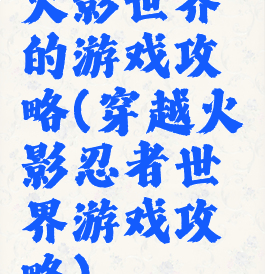 火影世界
的游戏攻
略(穿越火
影忍者世
界游戏攻
略)